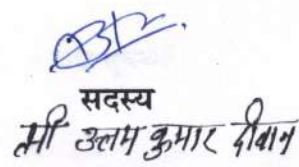 सदस्य
श्री उत्तम कुमार दीवान